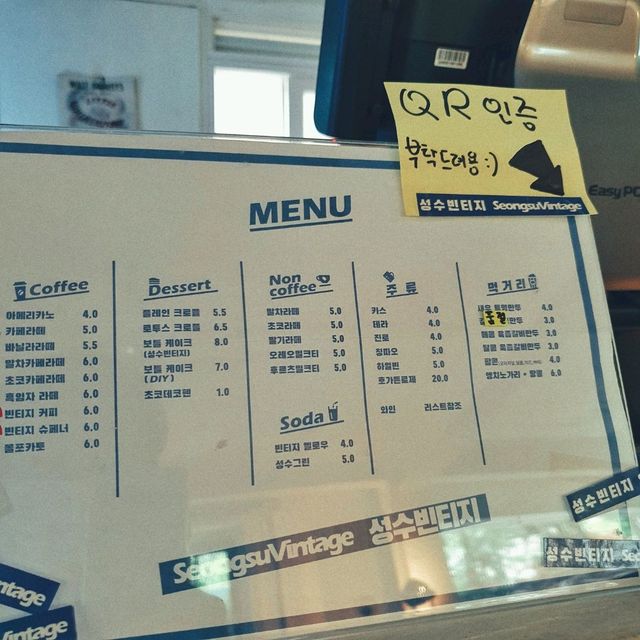 QR 인증
부탁드려용 :)
성수빈티지 SeongsuVintage
EasyPO
MENU
Coffee
아메리카노 4.0
카페라떼 5.0
바닐라라떼 5.5
말차카페라떼 6.0
초코카페라떼 6.0
흑임자 라떼 6.0
빈티지 커피 6.0
빈티지 슈페너 6.0
몽포카토 6.0
Dessert
플레인 크로플 5.5
로투스 크로플 6.5
보틀 케이크 8.0
(성수빈티지)
보틀 케이크 7.0
(DIY)
초코데코펜 1.0
Non
coffee
말차라떼 5.0
초코라떼 5.0
딸기라떼 5.0
오레오밀크티 5.0
후르츠밀크티 5.0
Soda
빈티지 옐로우 4.0
성수그린 5.0
주류
카스 4.0
테라 4.0
진로 4.0
칭따오 5.0
하얼빈 5.0
호가든로제 20.0
와인 리스트참조
먹거리
새우 트랙만두 4.0
만두 3.0
매콤 육즙갈비만두 3.0
달콤 육즙갈비만두 3.0
팝콘 4.0
앵치노가리 + 땅콩 6.0
SeongsuVintage 성수빈티지
성수빈티지
성수빈티지 Se
ntage
Vintage